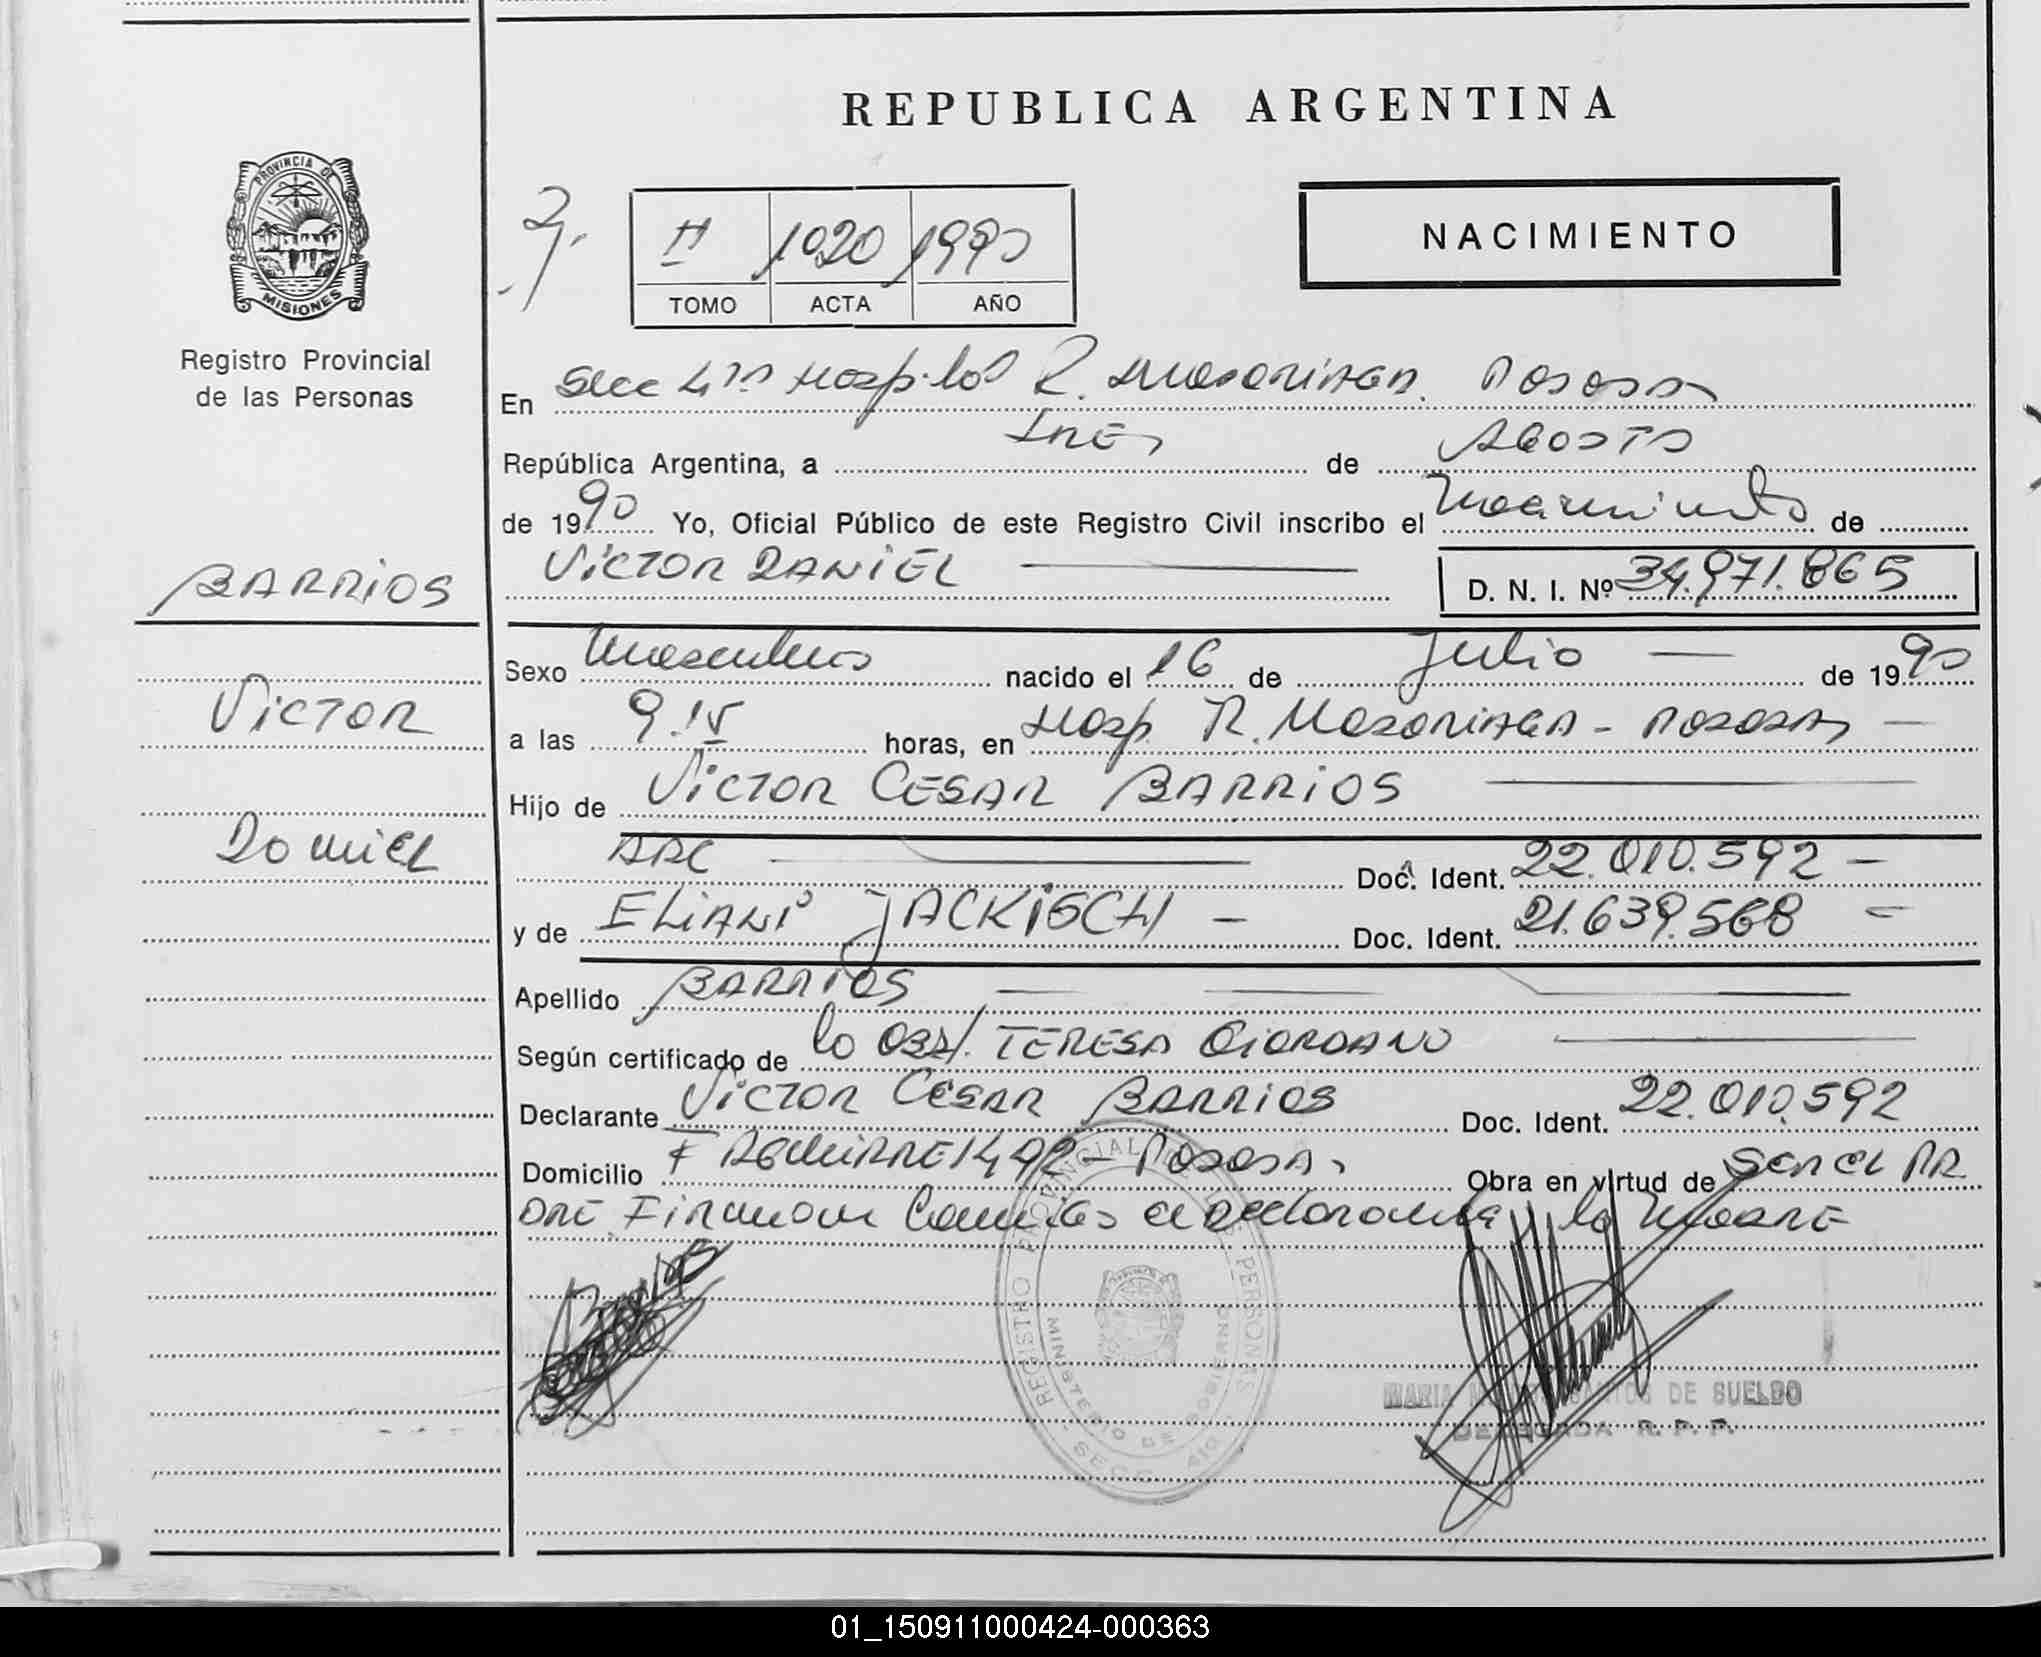 REPUBLICA ARGENTINA
PROVINCIA DE
MISIONES
Registro Provincial
de las Personas
II 1020 1990
TOMO ACTA AÑO
NACIMIENTO
En Secc 4ta Hospital R. Madariaga. Posadas
República Argentina, a tres de Agosto
de 1990 Yo, Oficial Público de este Registro Civil inscribo el nacimiento de
VICTOR DANIEL D. N. I. Nº 34.971.865
BARRIOS
VICTOR
DANIEL
Sexo Masculino nacido el 16 de Julio de 1990
a las 9.15 horas, en Hosp. R. Madariaga - Posadas
Hijo de VICTOR CESAR BARRIOS
ARG Doc. Ident. 22.010.592
y de ELIANI JACKISCH Doc. Ident. 21.639.568
Apellido BARRIOS
Según certificado de la Obst. TERESA GIORDANO
Declarante VICTOR CESAR BARRIOS Doc. Ident. 22.010.592
Domicilio F AGUIRRE 1492 - Posadas Obra en virtud de SER EL PA
DRE Firman con el declarante la MADRE
REGISTRO PROVINCIAL DE LAS PERSONAS
MINISTERIO DE GOBIERNO
MARIA DE SUELDO
DELEGADA R. P. P.
01_150911000424-000363